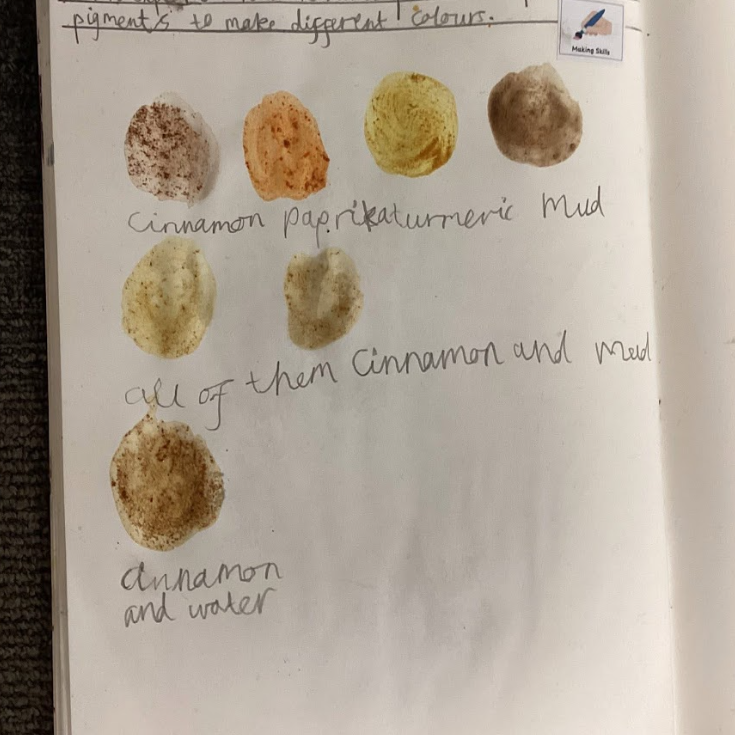 pigments to make different colours.
Making Skills
cinnamon paprika turmeric Mud
all of them Cinnamon and mud
cinnamon
and water